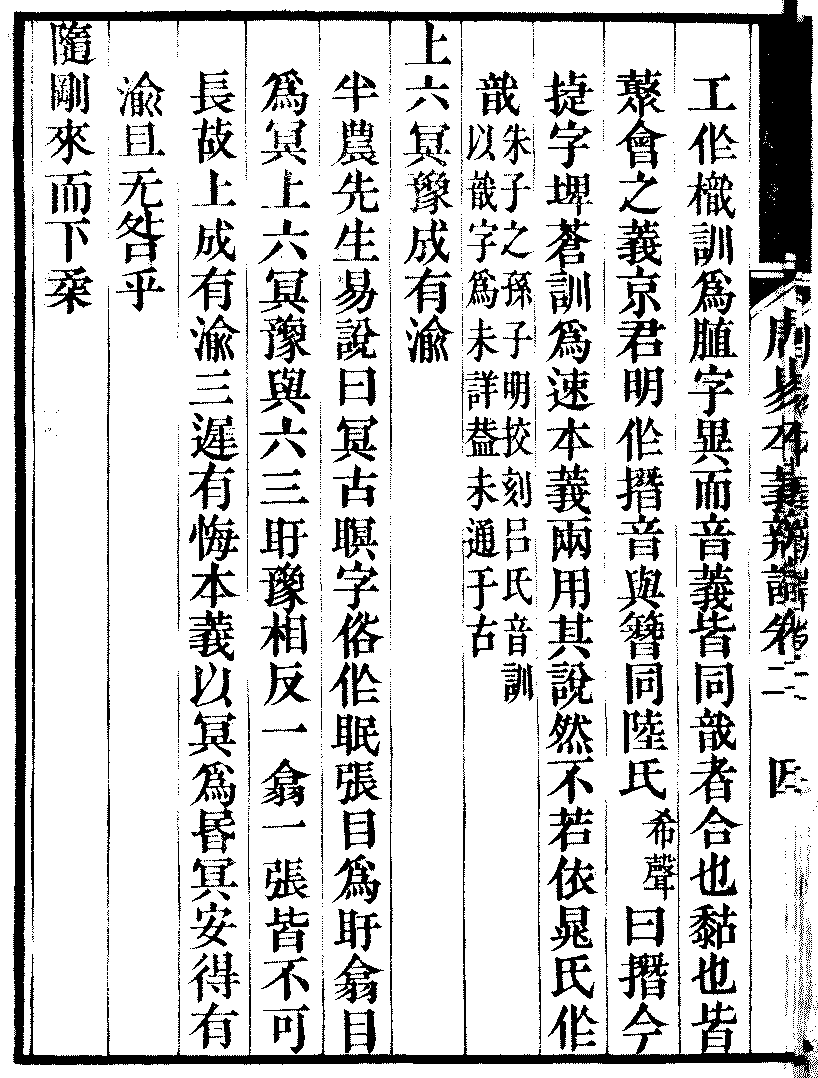 周易本義辨證卷二 四
工作樴訓爲膱字異而音義皆同戠者合也黏也皆
藂會之義京君明作撍音與簪同陸氏希聲曰撍今
捷字埤蒼訓爲速本義兩用其說然不若依晁氏作
戠朱子之孫子明挍刻吕氏音訓
以戠字爲未詳葢未通于古
上六冥豫成有渝
半農先生易說曰冥古瞑字俗作眠張目爲盱翕目
爲冥上六冥豫與六三盱豫相反一翕一張皆不可
長故上成有渝三遲有悔本義以冥爲昬冥安得有
渝且无咎乎
隨剛來而下柔